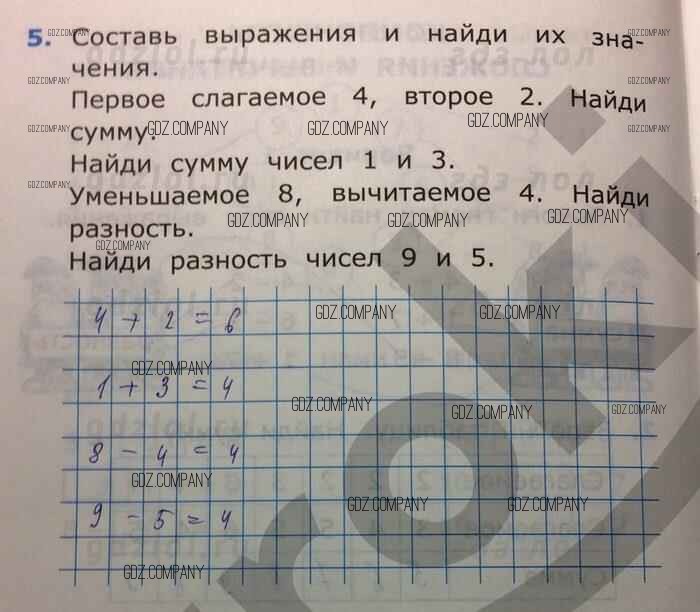 5. Составь выражения и найди их зна-
чения.
Первое слагаемое 4, второе 2. Найди
сумму.
Найди сумму чисел 1 и 3.
Уменьшаемое 8, вычитаемое 4. Найди
разность.
Найди разность чисел 9 и 5.
4 + 2 = 6
1 + 3 = 4
8 - 4 = 4
9 - 5 = 4
GDZ.COMPANY